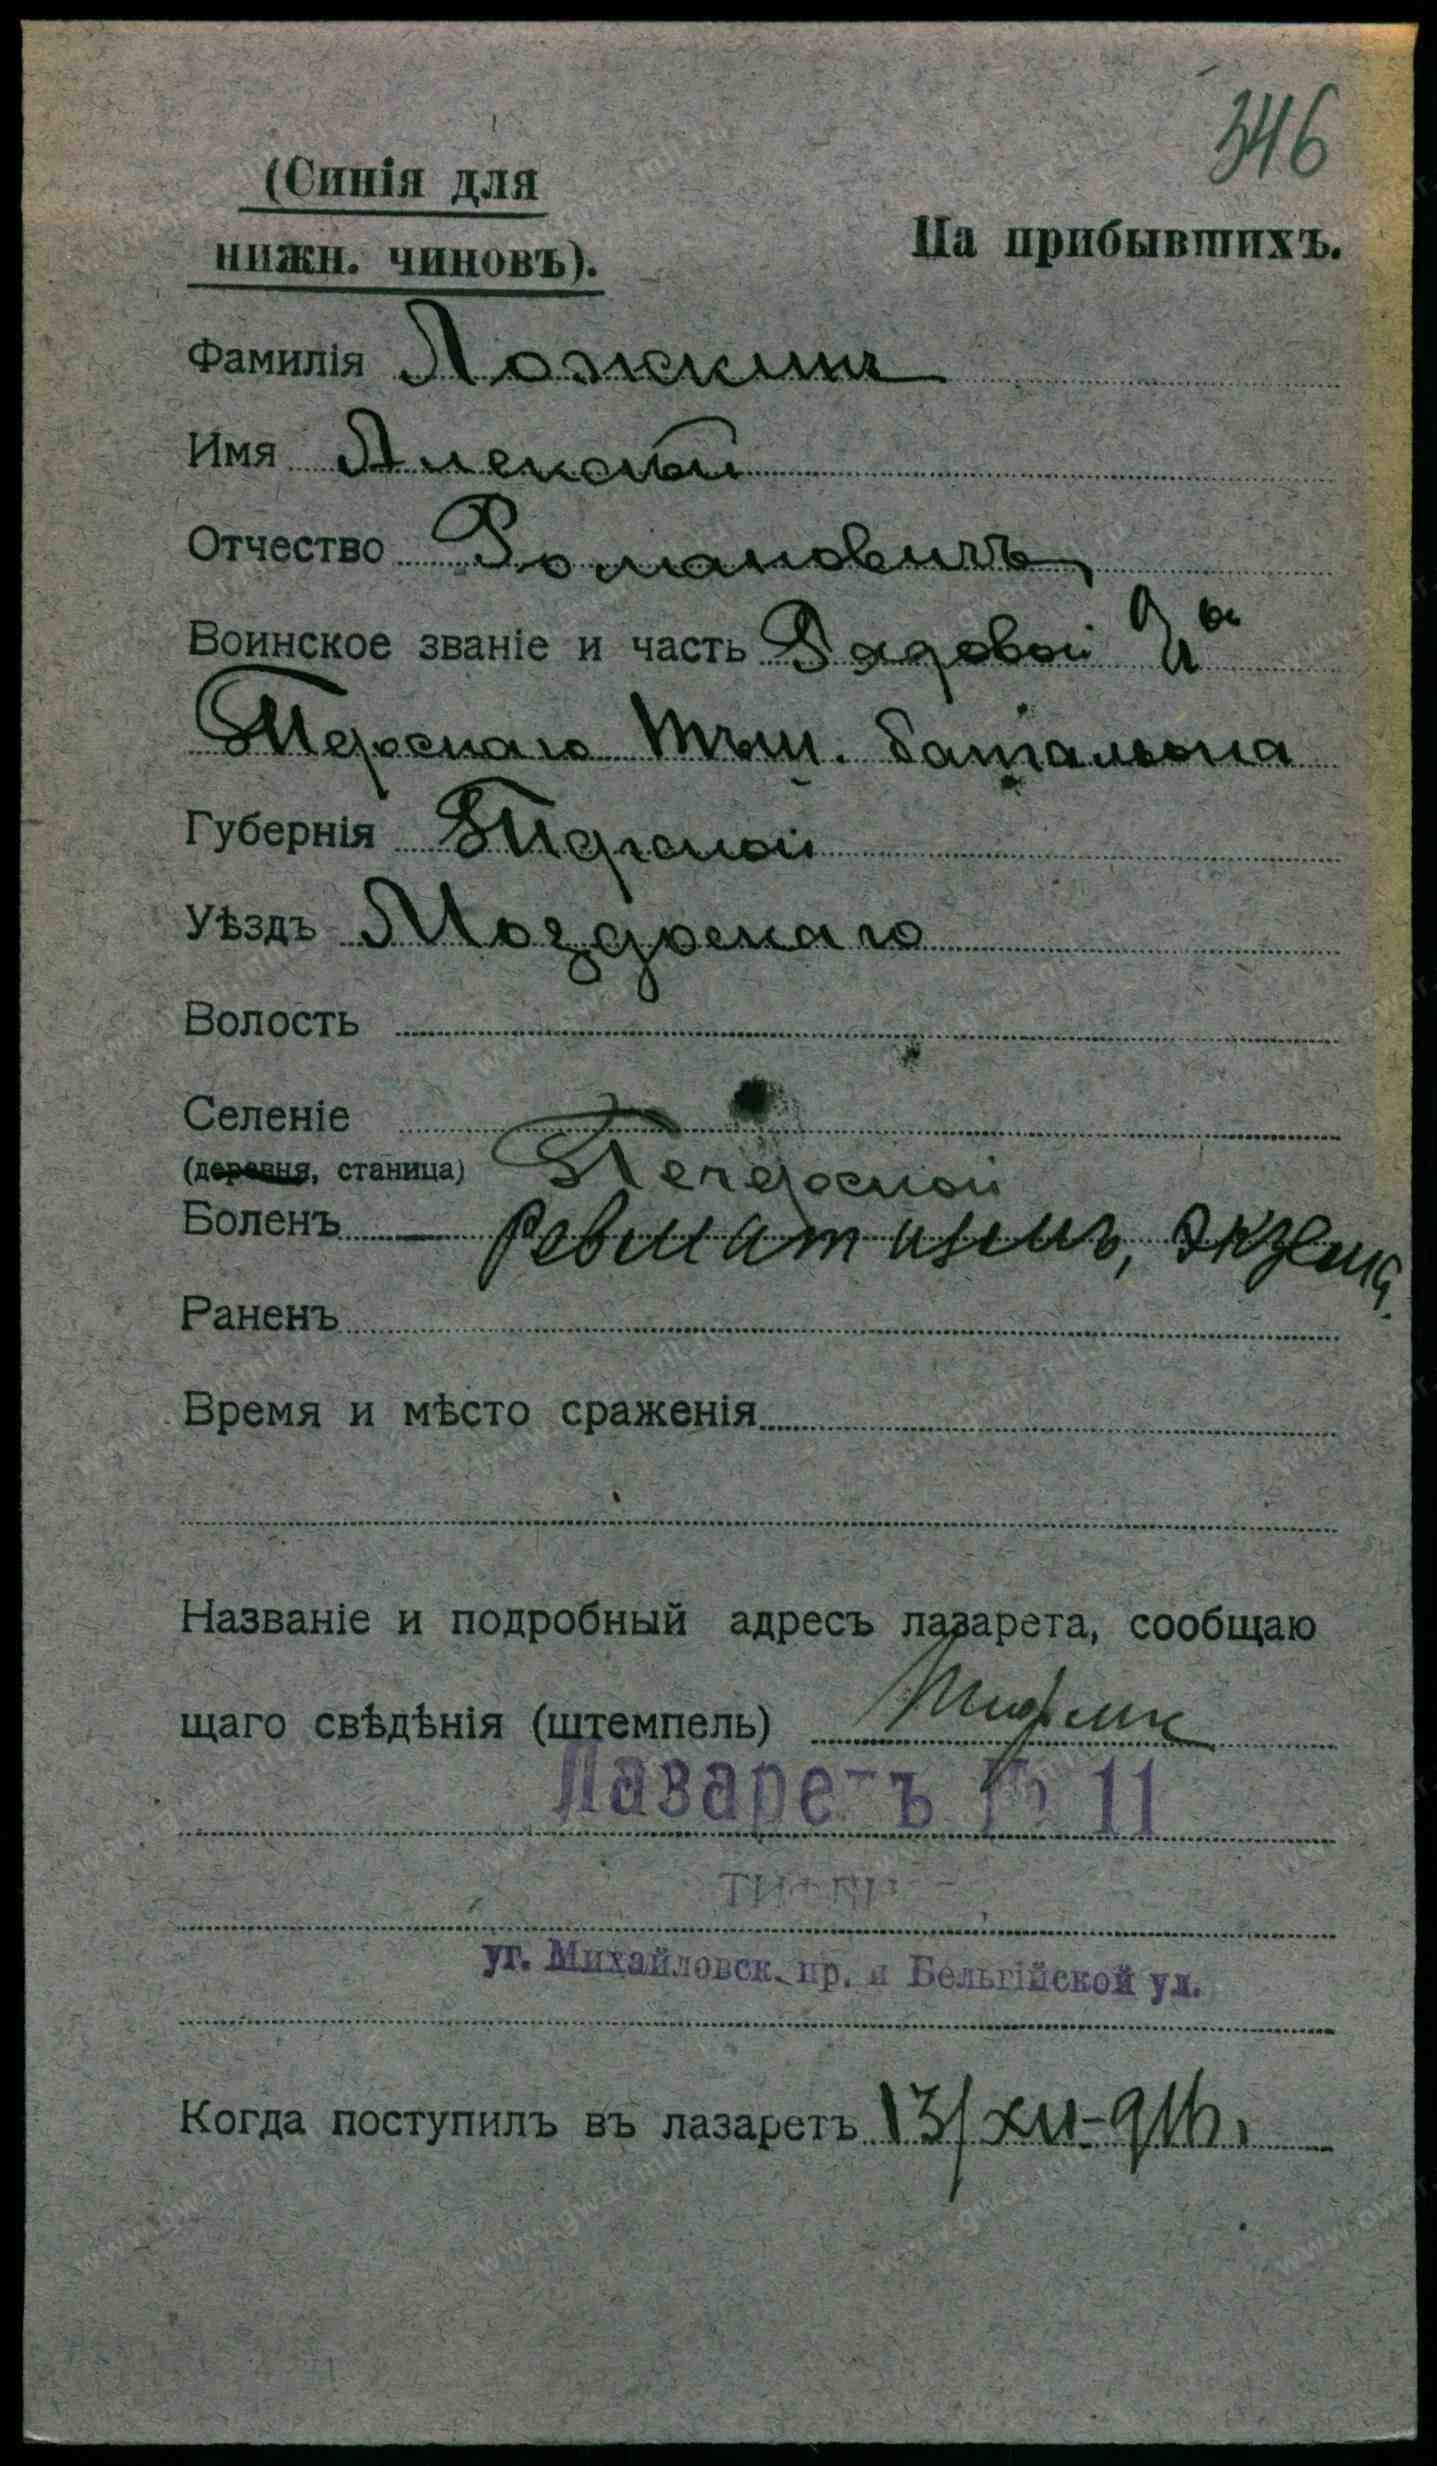 346
(Синія для
нижн. чиновъ).
На прибывшихъ.
Фамилія Ложкинъ
Имя Алексѣй
Отчество Романовичъ
Воинское званіе и часть Рядовой
Терскаго пѣш. батальона
Губернія Терской
Уѣздъ Моздокскаго
Волость
Селеніе
(деревня, станица)
Боленъ — Ревматизмъ, экзема.
Раненъ
Время и мѣсто сраженія
Названіе и подробный адресъ лазарета, сообщаю
щаго свѣдѣнія (штемпель) Тифлис
Лазаретъ № 11
ТИФЛИС
уг. Михайловск. пр. и Бельгійской ул.
Когда поступилъ въ лазаретъ 13/XII-916.